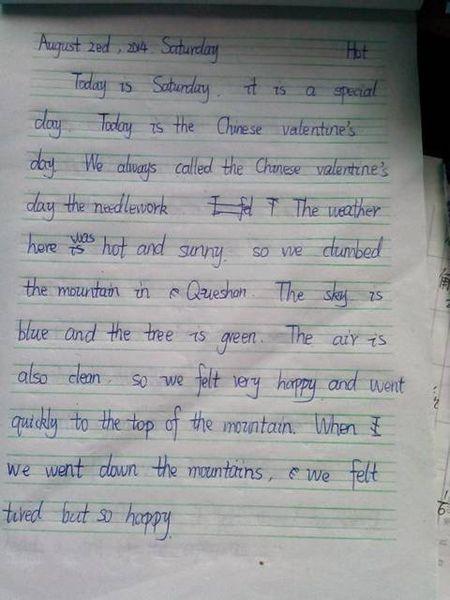 August 2ed, 2014 Saturday Hot
Today is Saturday. it is a special
day. Today is the Chinese valentine's
day. We always called the Chinese valentine's
day the needlework The weather
here was hot and sunny. so we clumbed
the mountain in Queshan. The sky is
blue and the tree is green. The air is
also clean. so we felt very happy and went
quickly to the top of the mountain. When
we went down the mountains, we felt
tired but so happy.